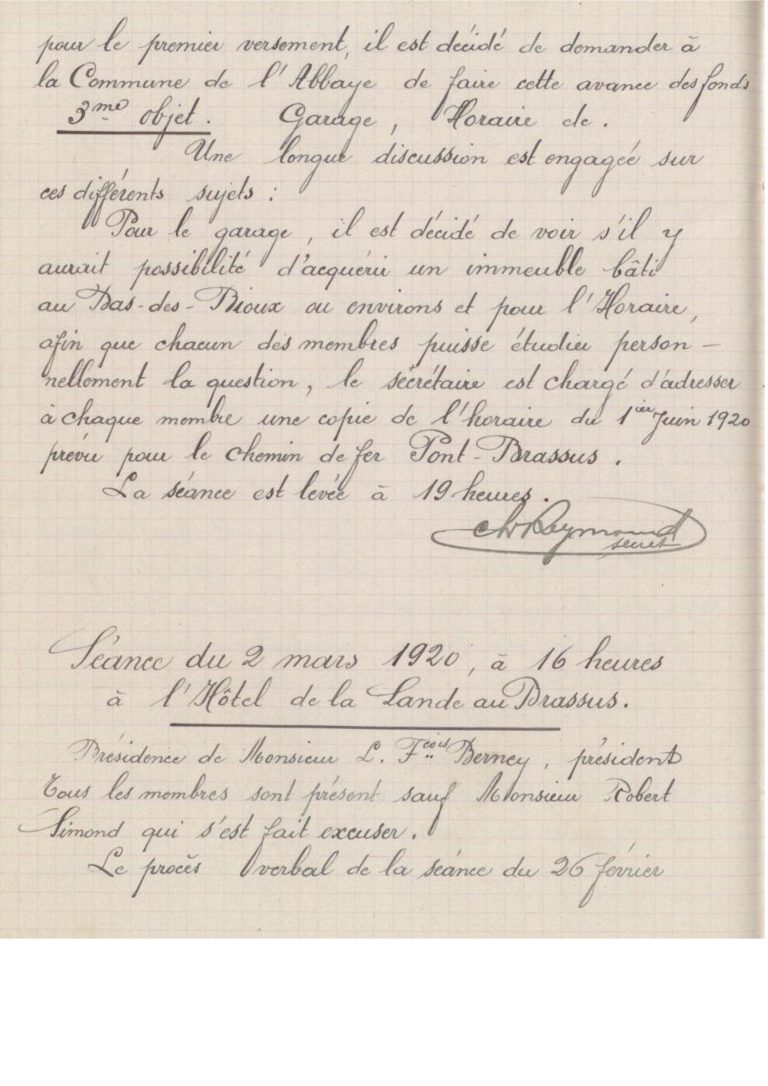 pour le premier versement, il est décidé de demander à
la Commune de l'Abbaye de faire cette avance des fonds
3me objet. Garage, Horaire etc.
Une longue discussion est engagée sur
ces différents sujets :
Pour le garage, il est décidé de voir s'il y
aurait possibilité d'acquérir un immeuble bâti
au Bas-des-Bioux ou environs et pour l'Horaire,
afin que chacun des membres puisse étudier person-
nellement la question, le sécrétaire est chargé d'adresser
à chaque membre une copie de l'horaire du 1ier Juin 1920
prévu pour le chemin de fer Pont-Brassus.
La séance est levée à 19 heures.
Raymond
secret
Séance du 2 mars 1920, à 16 heures
à l'Hôtel de la Lande au Brassus.
Présidence de Monsieur L. Fcois Berney, président
Tous les membres sont présent sauf Monsieur Robert
Simond qui s'est fait excuser.
Le procès verbal de la séance du 26 février